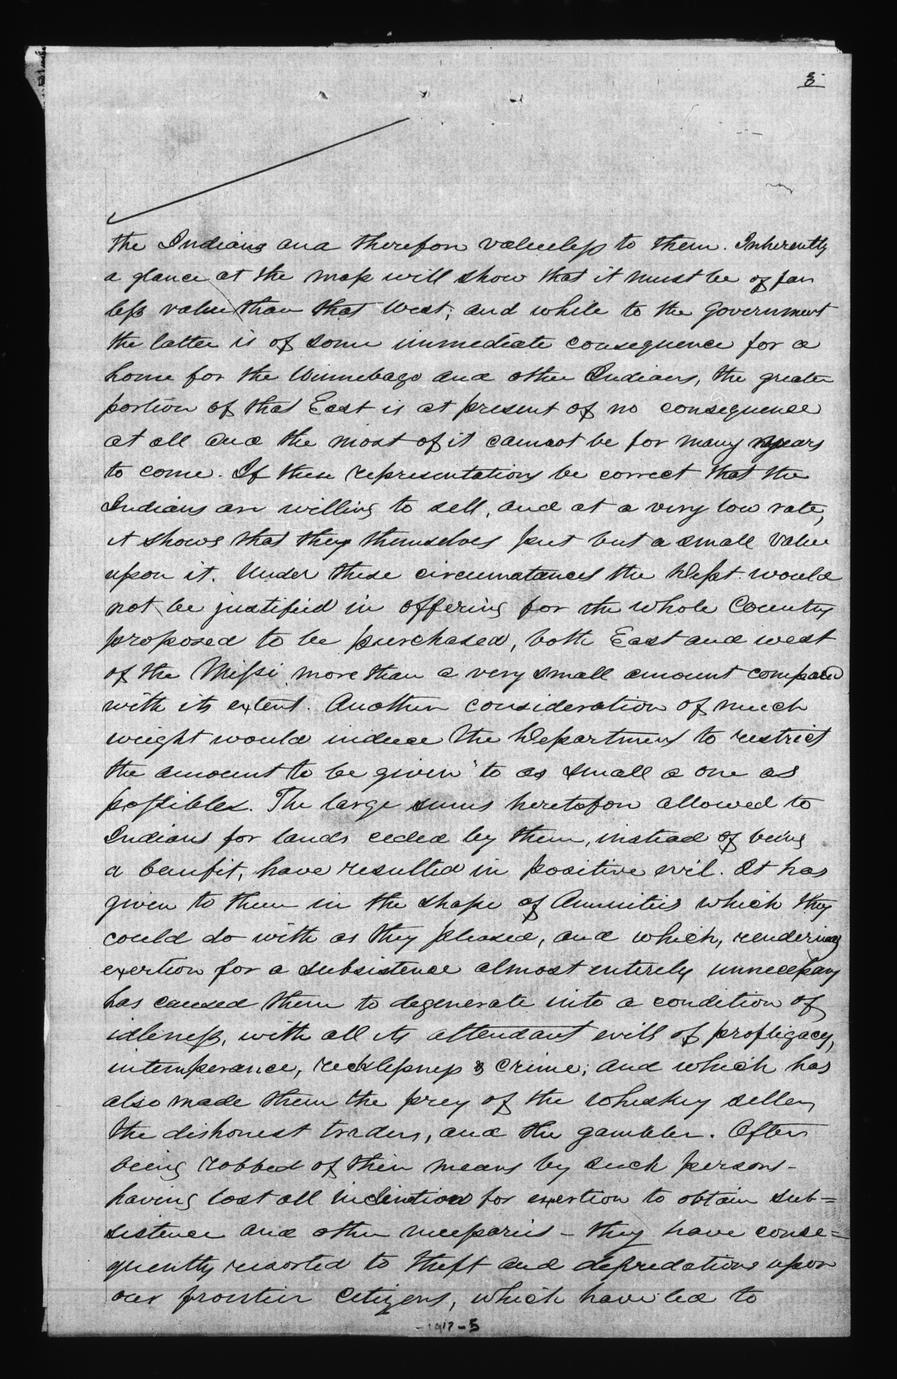 3
the Indians and therefore valueless to them. Inherently
a glance at the map will show that it must be of far
less value than that West; and while to the Government
the latter is of some immediate consequence for a
home for the Winnebago and other Indians, the greater
portion of that East is at present of no consequence
at all and the most of it cannot be for many years
to come. If these representations be correct that the
Indians are willing to sell, and at a very low rate,
it shows that they themselves put but a small value
upon it. Under these circumstances the Dept. would
not be justified in offering for the whole Country
proposed to be purchased, both East and west
of the Missi. more than a very small amount compared
with its extent. Another consideration of much
weight would induce the Department to restrict
the amount to be given to as small a one as
possible. The large sums heretofore allowed to
Indians for lands ceded by them, instead of being
a benefit, have resulted in positive evil. It has
given to them in the shape of Annuities which they
could do with as they pleased, and which, rendering
exertion for a subsistence almost entirely unnecessary
has caused them to degenerate into a condition of
idleness, with all its attendant evils of profligacy,
intemperance, recklessness & crime; and which has
also made them the prey of the whiskey seller,
the dishonest traders, and the gambler. Often
being robbed of their means by such persons -
having lost all inclination for exertion to obtain sub=
sistence and other necessaries - they have conse=
quently resorted to theft and depredations upon
our frontier citizens, which have led to
-1417-5